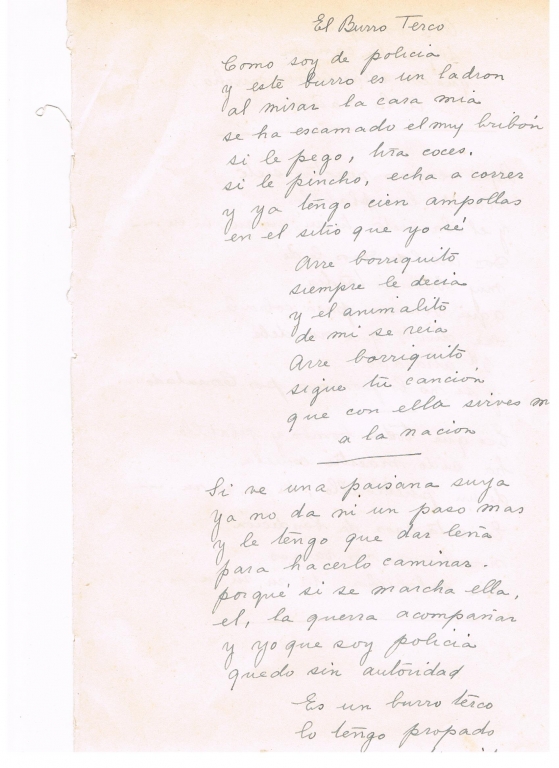 El Burro Terco
Como soy de policia
y este burro es un ladron
al mirar la cara mia
se ha escamado el muy bribón
si le pego, tira coces,
si le pincho, echa a correr
y ya tengo cien ampollas
en el sitio que yo sé
Arre borriquito
siempre le decia
y el animalito
de mi se reia
Arre borriquito
sigue tu canción
que con ella sirves m
a la nación
Si ve una paisana suya
ya no da ni un paso mas
y le tengo que dar leña
para hacerlo caminar.
porqué si se marcha ella,
el, la querra acompañar
y yo que soy policia
quedo sin autoridad
Es un burro terco
lo tengo propado